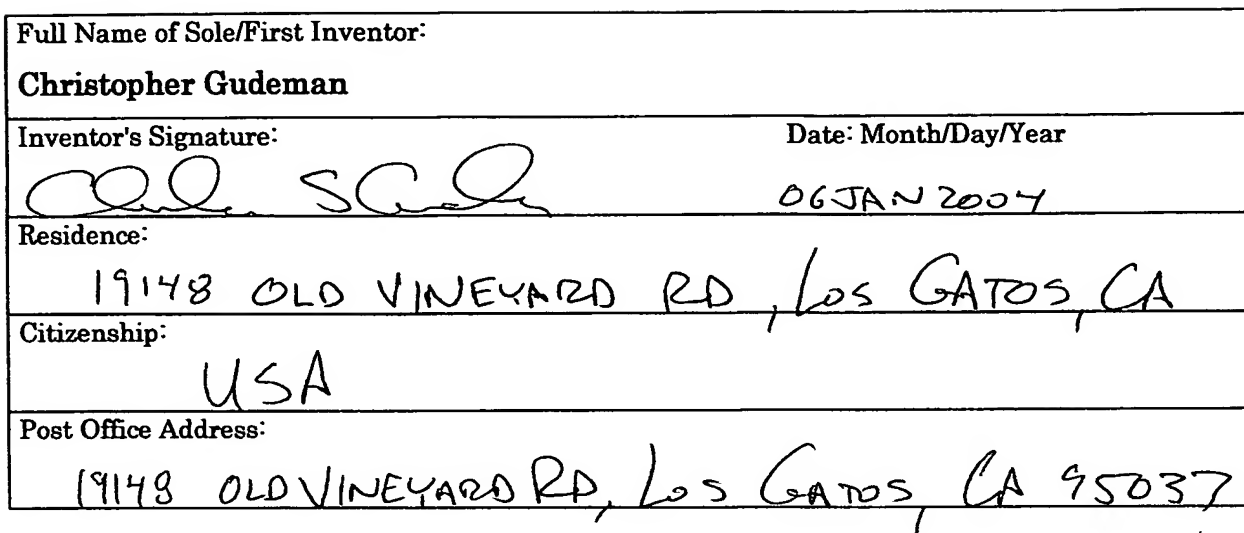 Full Name of Sole/First Inventor:
Christopher Gudeman
Inventor's Signature:
Date: Month/Day/Year
06 JAN 2004
Residence:
19148 OLD VINEYARD RD, LOS GATOS, CA
Citizenship:
USA
Post Office Address:
19148 OLD VINEYARD RD, LOS GATOS, CA 95037